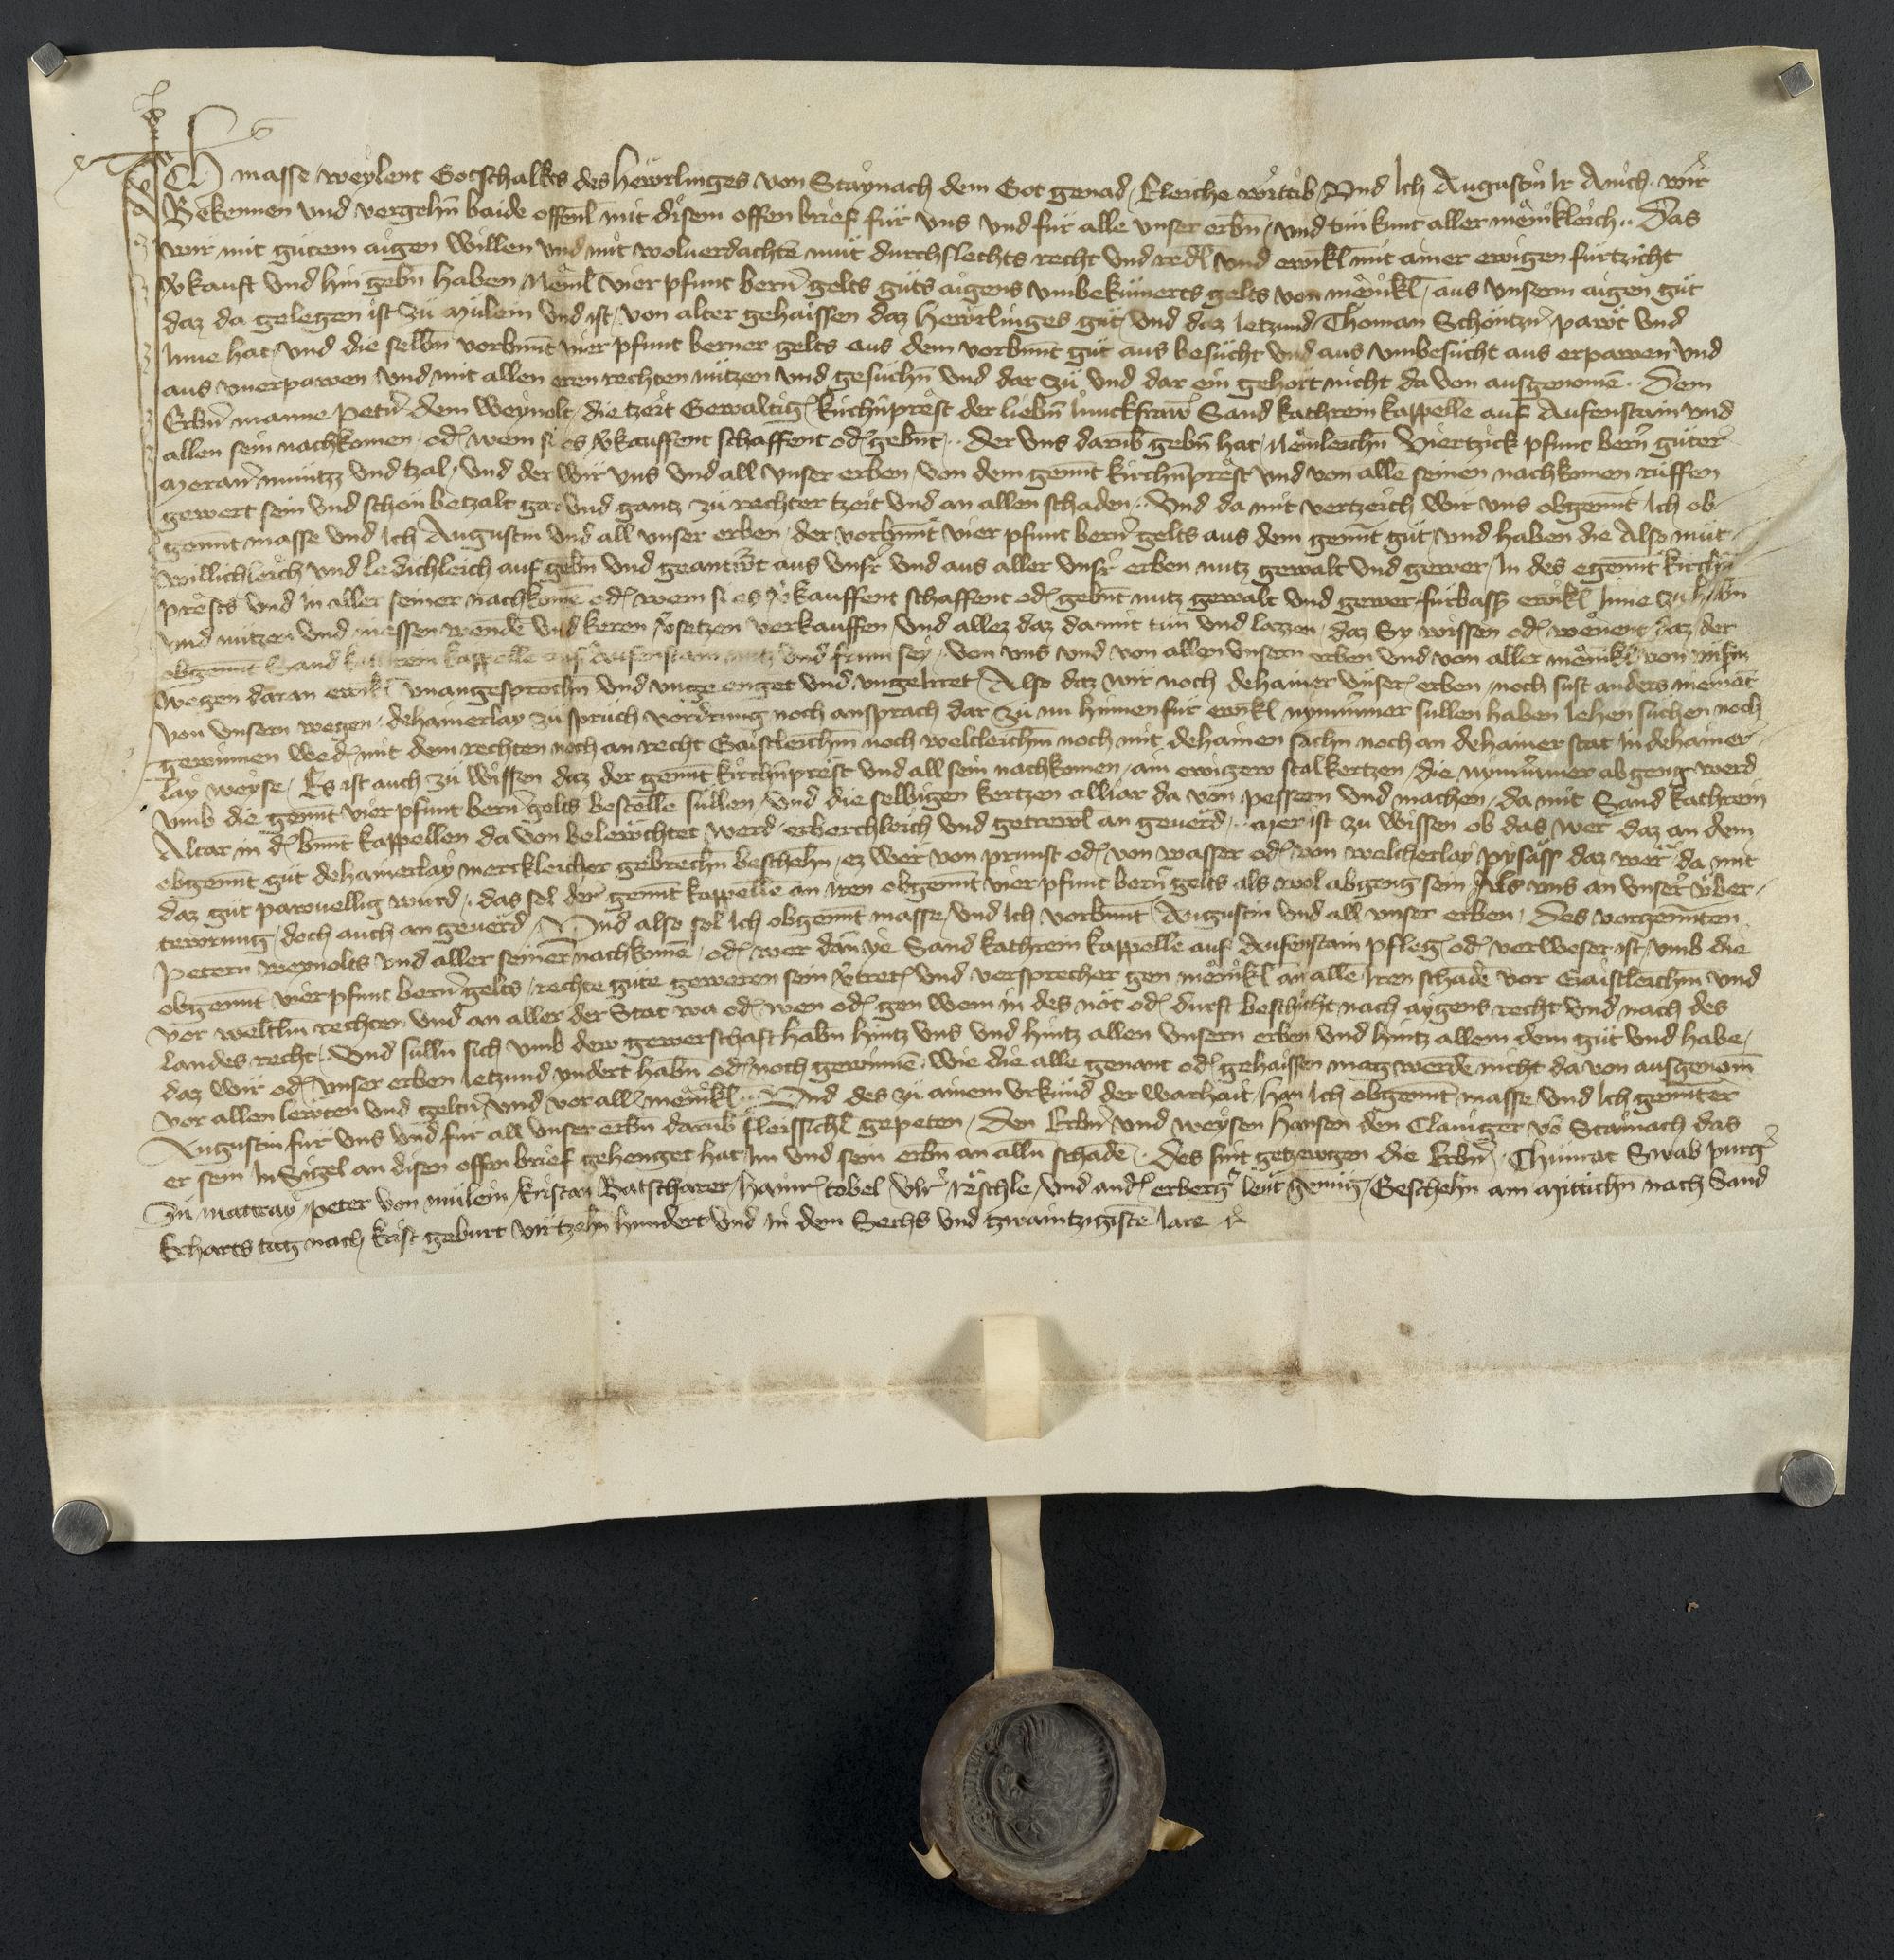 Ich masse weylent Gotschalkes des Hewrlinges von Staynach dem Got genad Eleiche wittib Und Ich Augustin Ir Anich wir
Bekennen und vergehn̄ baide offenl̄ mit disem offen brief für uns und für alle unser erbn̄ und tün kunt aller mënikleich Das
wir mit gütem aigen willen und mit wolverdachtē müt durchslechts recht und redl̄ und ewikl̄ mit ainer ewigen fürtzicht
v̾kauft und hin gebn̄ haben Nëml̄ vier pfunt bern̾ gelts güts aigens umbekümerts gelts von mënikl̄ aus unserm aigen güt
daz da gelegen ist zü Mülein und ist von alter gehaissen daz Hewrlinges güt und daz Ietzund Thoman Schöntzn̾ pawt und
Inne hat und die selbn̄ vorbnn̄t vier pfunt berner gelts aus dem vorbnn̄t güt aus besücht und aus umbesücht aus erpawen und
aus unerpawen und mit allen eren rechten nützen und gesüchn̄ und dar zü und dar ein gehört nicht da von ausgenomē Dem
Erbn̾ manne Petn̾ dem Weynolt die tzeit Gewaltig̾ kirchn̄prëst der liebn̄ Iunckfraw Sand kathrein kappelle auf Aufenstain und
allen sein nachkomen od̾ wem si es v̾kauffent schaffent od̾ gebnt der uns darub̄ gebn̄ hat Nëmleichn̄ Viertzick pfunt bern̾ güter
Meran̾ müntzz und tzal und der wir uns und all unser erben von dem gennt̄ kirchn̄prëst und von alle seinen nachkomen rüffen
gewert sein und schon betzalt gar und gantz zü rechter tzeit und an allen schaden Und da mit vertzeich wir uns obgennt̄ Ich ob
gennt masse und Ich Augustin und all unser erben der vorbnn̄t vier pfunt bern̾ gelts aus dem gennt̄ güt und haben die Also müt
willichleich und ledichleich auf gebn̄ und geantw̾t aus unsr̾ und aus aller unsr̾ erben nutz gewalt und gewer In des egennt̄ kirchn̄
prësts und In aller seiner nachkomē od̾ wem si es v̾kauffent schaffent od̾ gebnt nutz gewalt und gewer fürbass ewikl̄ Inne zu habn̄
und nützen und niessen wendē und keren v̾setzen verkauffen und allez daz damit tün und lazzen daz Sy wissen od̾ wënent daz der
obgennt̄ Sand kathrein kappelle auf Aufenstain nutz und frum sey von uns und von allen unsern erben und von aller mënikl̄ von unsn̄
wegen daran ewikl̄ unangesprochn̄ und ungeenget und ungeIrret Also daz wir noch dehainer unser̾ erben noch süst anders niemāt
von unsern wegen dehainerlay zü sprüch vördrung noch ansprach dar zü nu hinnenfür ewikl̄ nymmer sullen haben Iehen süchen noch
gewinnen wed̾ mit dem rechten noch an recht Gaistleichm̄ noch weltleichm̄ noch mit dehainen sachn̄ noch an dehainer stat In dehainer
lay weyse Es ist auch zü wissen daz der gennt̄ kirchn̄prëst und all sein nachkomen ain ewigew stalkertzen die nymmer abgeng werd
umb die gennt̄ vier pfunt bern̾ gelts bestellē süllen und die selbigen kertzen alliar da von pessern und machen da mit Sand kathrein
Altar in d̾ bnn̄t kappellen da von belewchtet werd erberchleich und getrewl̄ an geverd Mer ist zu wissen ob das wër daz an dem
obgennt̄ güt dehainerlay merckleicher gebrechn̄ beschehn̄ ez wër von prunst od̾ von wasser od̾ von welcherlay pysäss daz wër da mit
daz güt pawvellig würd das sol der gennt̄ kappelle an Iren obgennt̄ vier pfunt bern̾ gelts als wol abgeng sein Als uns an unser̾ über
tewrung doch auch an geverd Und also sol Ich obgennt̄ masse und Ich vorbnn̄t Augustin und all unser erben Des vorgennten
Petern weynolts und aller seiner nachkomē od̾ wer dan̄ ye Sand kathrein kappelle auf Aufenstain pfleg̾ od̾ verweser ist umb die
obgennt̄ vier pfunt bern̾ gelts rechte güte geweren sein v̾tret̾ und versprecher gen mënikl̄ an allē Iren schadē vor Gaistleichm̄ und
vor weltlm̄ rechten und an aller der Stat wa od̾ wen od̾ gen wem in des nöt od̾ durft beschicht nach aygens recht und nach des
landes recht Und sülln̄ sich umb dew gewerschaft habn̄ hintz uns und hintz allen unsern erben und hintz allem dem güt und habe
daz wir od̾ unser erben Ietzund undert habn̄ od̾ noch gewinnē wie die alle genant od̾ gehaissen mag werdē nicht da von ausgenom̄
vor allen lewten und geltn̾ und vor all̾ mënikl̄ Und des zü ainem urkünd der warhait Han Ich obgennt̄ masse und Ich gennter
Augustin für uns und für all unser erbn̄ darub̄ fleissichl̄ gepeten Den Erbn̾ und weysen Hansen den Claviger vō Stainach das
er sein InSigel an disen offen brief gehenget hat Im und sein erbn̄ an alln̄ schadē Des sint getzewgen die Erbn̾ Chünrat Swab purg̾
zü Matray Peter von mülein Kristan Ratschaxer Hainr̾ tobel Ulr̾ rëschle und and̾ erberg̾ leüt genüg Geschehn am Mittichn̄ nach Sand
Erharts tag nach krist geburt virtzehn̄ hundert und In dem Sechs und tzwaintzigistē Iare